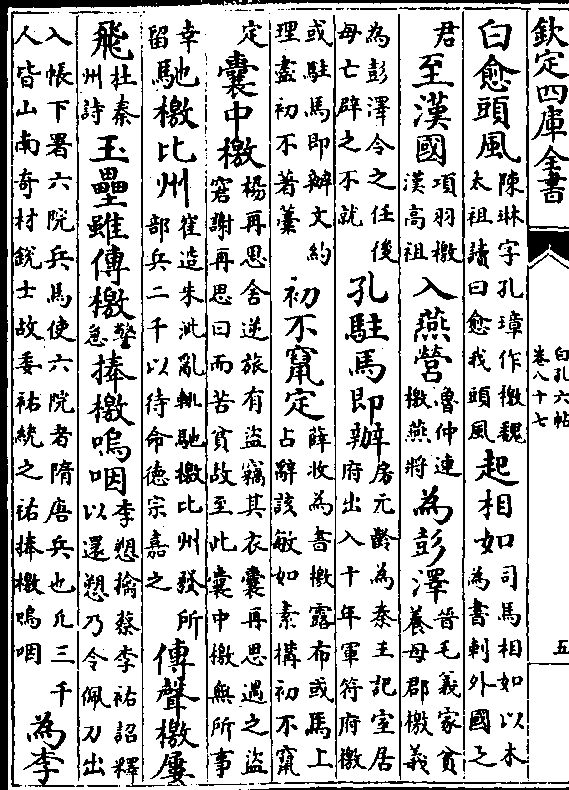 欽定四庫全書
白孔六帖
卷八十七
五
曰愈頭風
陳琳字孔璋作檄魏
太祖讀曰愈我頭風
起相如
司馬相如以木
為書刺外國之
君
至漢國
項羽檄
漢高祖
入燕營
魯仲連
檄燕將
為彭澤
晉毛義家貧
養母郡檄義
為彭澤令之任後
母亡辟之不就
孔駐馬即辦
房元齡為秦王記室居
府出入十年軍符府檄
或駐馬即辦文約
理盡初不著藁
初不竄定
薛收為書檄露布或馬上
占辭該敏如素構初不竄
定
囊中檄
楊再思舍逆旅有盜竊其衣囊再思遇之盜
窘謝再思曰而苦貧故至此囊中檄無所事
幸
留
馳檄比州
崔造朱泚亂輒馳檄比州發所
部兵二千以待命德宗嘉之
傳聲檄屢
飛
杜秦
州詩
玉壘雖傳檄
警
急
捧檄嗚咽
李愬擒蔡李祐詔釋
以還愬乃令佩刀出
入帳下署六院兵馬使六院者隋唐兵也凡三千
人皆山南奇材銳士故委祐統之祐捧檄嗚咽
為李